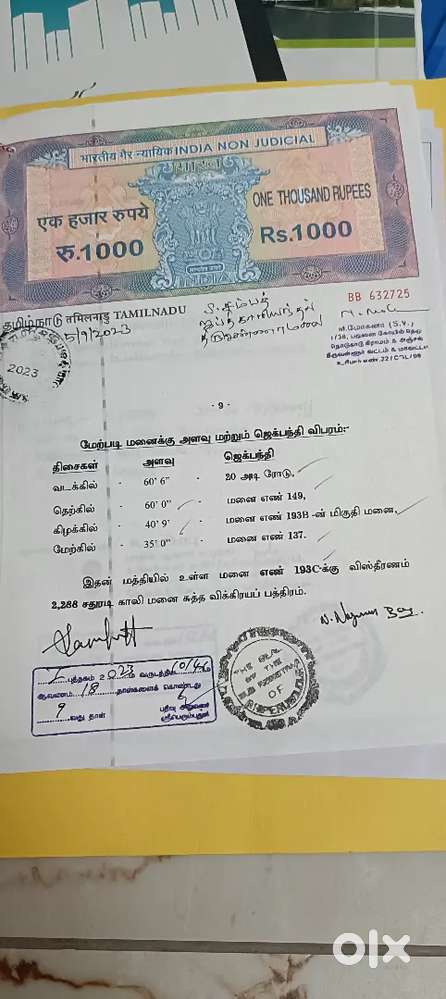 भारतीय गैर न्यायिक INDIA NON JUDICIAL
भारत
एक हजार रुपये
ONE THOUSAND RUPEES
रु.1000
Rs.1000
INDIA
BB 632725
தமிழ்நாடு तमिलनाडु TAMILNADU
5/9/2023
2023
- 9 -
மேற்படி மனைக்கு அளவு மற்றும் ஜெக்பந்தி விபரம்:-
திசைகள் அளவு ஜெக்பந்தி
வடக்கில் - 60' 6" - 20 அடி ரோடு,
தெற்கில் - 60' 0" - மனை எண் 149,
கிழக்கில் - 40' 9' - மனை எண் 193B-ன் மிகுதி மனை,
மேற்கில் - 35' 0" - மனை எண் 137.
இதன் மத்தியில் உள்ள மனை எண் 193C-க்கு விஸ்தீரணம்
2,288 சதுரடி காலி மனை சுத்த விக்கிரயப் பத்திரம்.
புத்தகம் 2023ம் வருடத்திய
ஆவணம் 18 தாள்களைக் கொண்டது
9 வது தாள்
THE SEAL
OF THE
OF
OLX